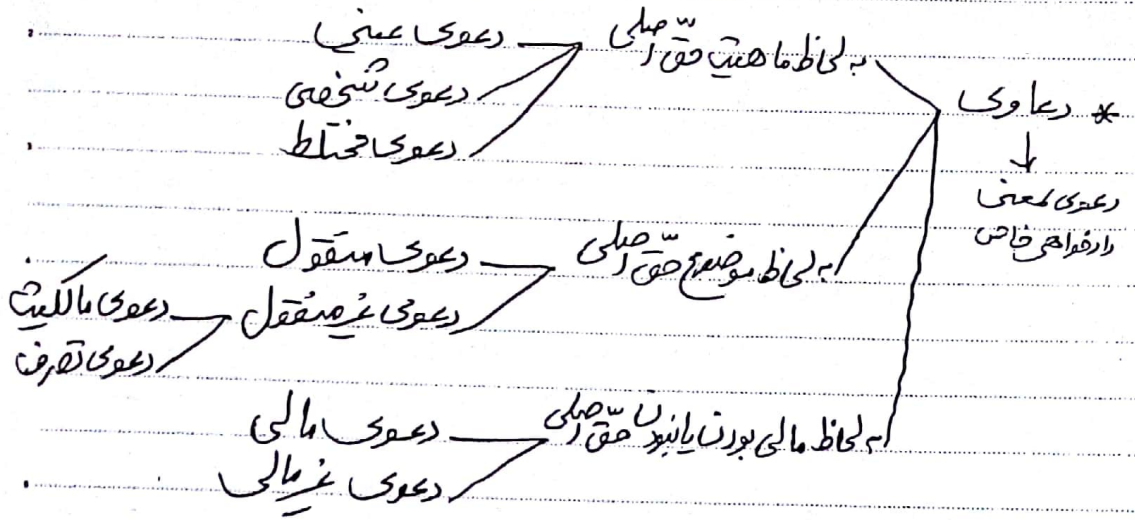 * دعاوی
دعوی بمعنی
دادخواهی خاص
به لحاظ ماهیت حقّ اصلی
دعوی عینی
دعوی شخصی
دعوی مختلط
به لحاظ موضوع حقّ اصلی
دعوی منقول
دعوی غیرمنقول
دعوی مالکیت
دعوی تصرف
به لحاظ مالی بودن یا نبودن حقّ اصلی
دعوی مالی
دعوی غیرمالی